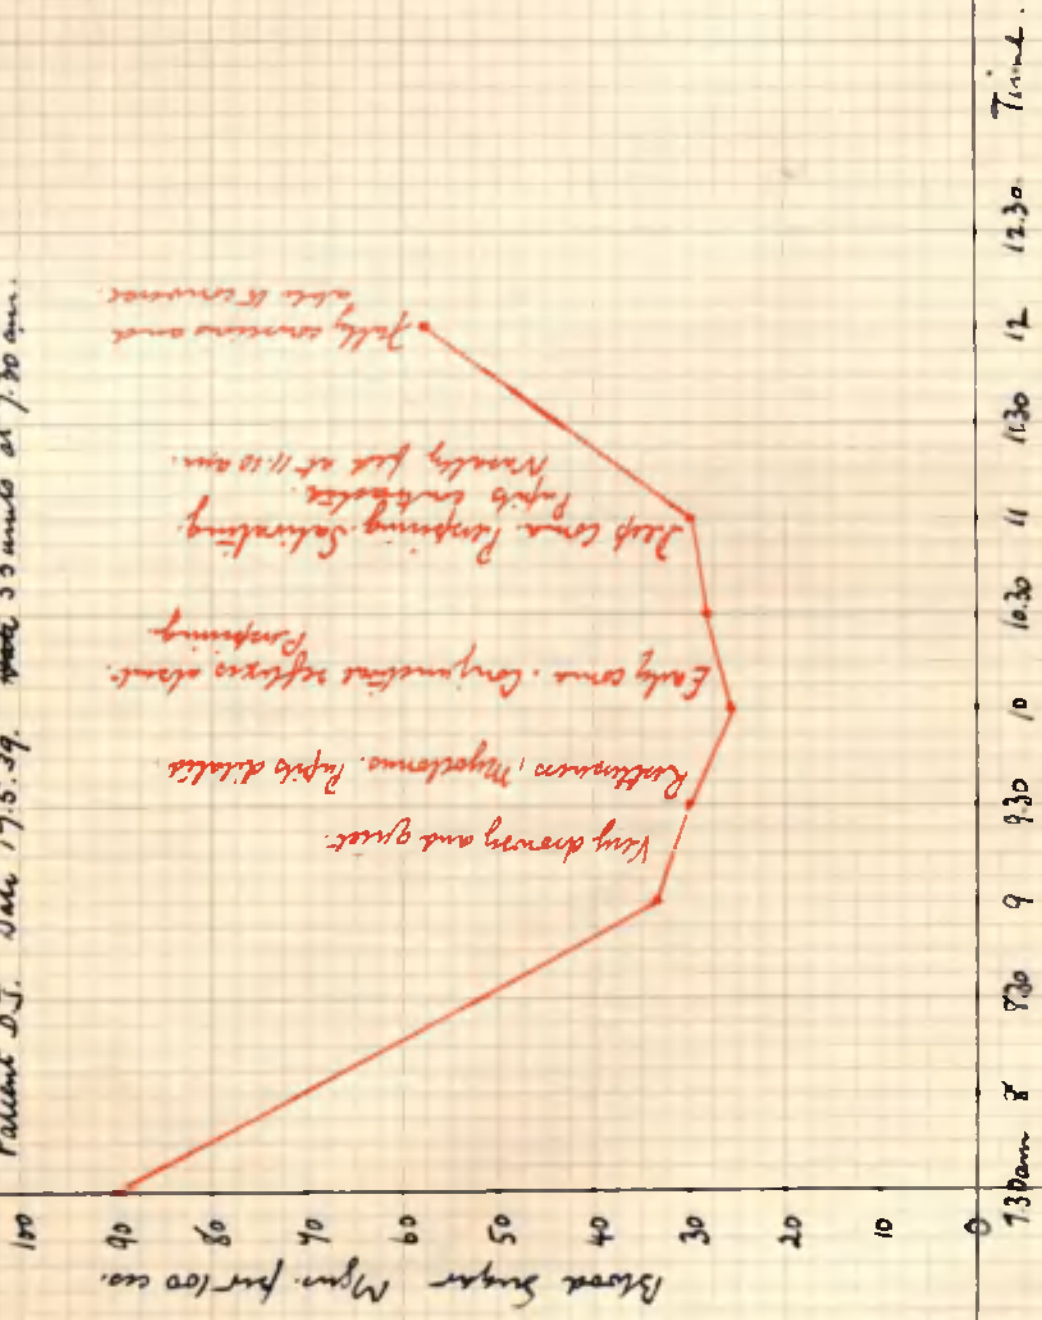 Patient D.J. Date 17.5.39. 55 units at 7.30 am.
100
90
80
70
60
50
40
30
20
10
0
Blood Sugar Mgms. per 100 ccs.
7.30am 8 8.30 9 9.30 10 10.30 11 11.30 12 12.30 Time.
Very drowsy and quiet.
Restlessness, Myoclonus. Pupils dilated
Early coma. Conjunctival reflexes absent.
Perspiring
Deep coma. Perspiring. Salivating.
Pupils contracted.
Nasally fed at 11.10 am.
Fully conscious and
able to converse.